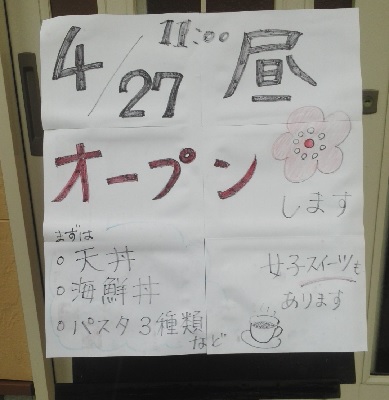 4/27 11:00 昼
オープン
します
まずは
○天丼
○海鮮丼
○パスタ3種類
など
女子スイーツも
あります